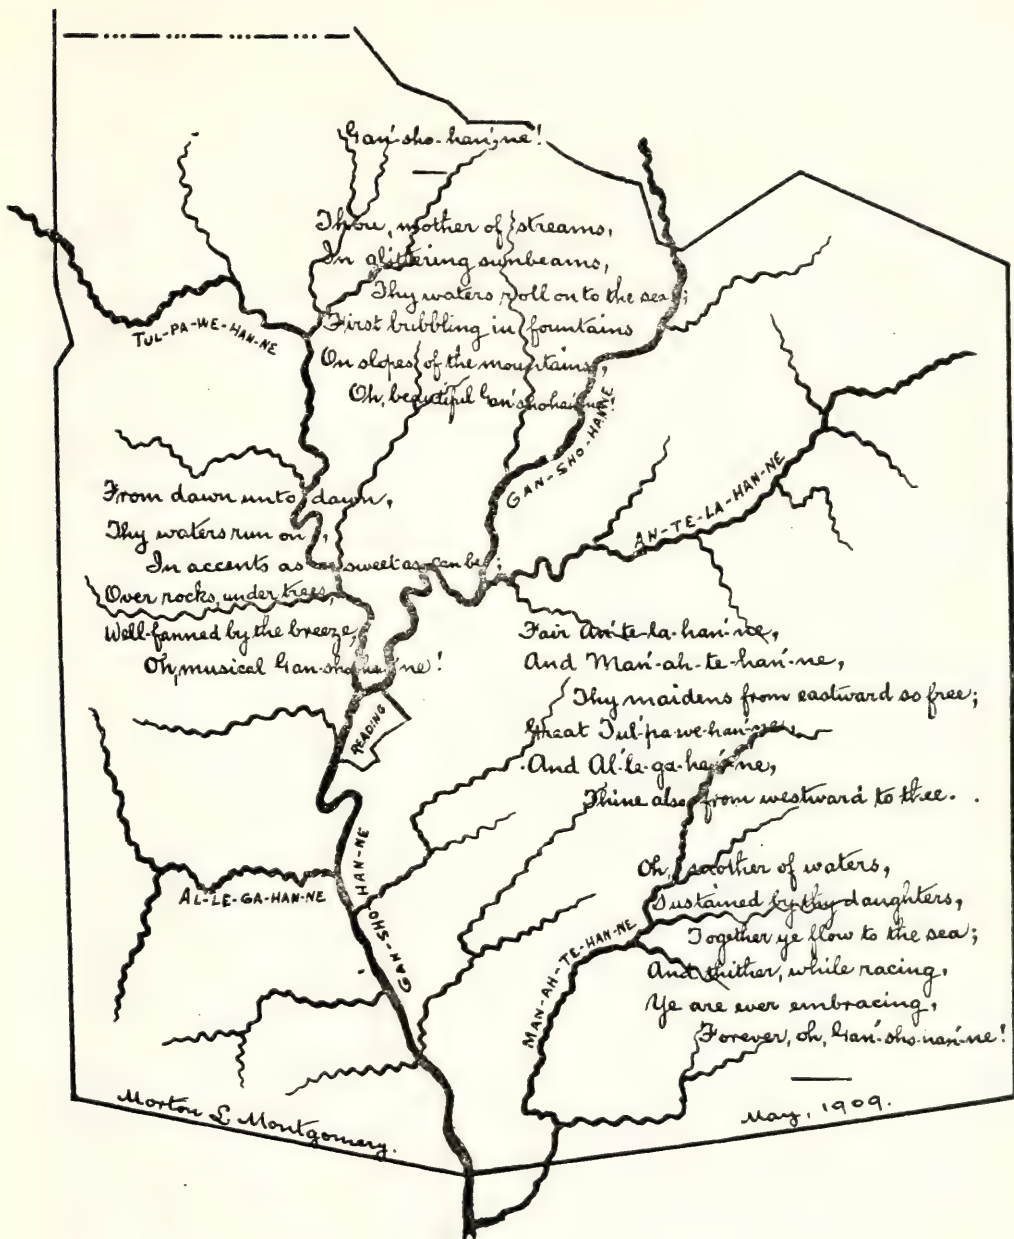 Gan'-sho-han'-ne!
Thou, mother of streams,
In glittering sunbeams,
Thy waters roll on to the sea;
First bubbling in fountains
On slopes of the mountains,
Oh, beautiful Gan'shohan'ne!
From dawn unto dawn,
Thy waters run on,
In accents as sweet as can be;
Over rocks, under trees,
Well-fanned by the breeze,
Oh, musical Gan-sho-han'-ne!
Fair An'-te-la-han'-ne,
And Man'-ah-te-han'-ne,
Thy maidens from eastward so free;
Great Tul'-pa-we-han'-ne,
And Al'-le-ga-han'-ne,
Thine also from westward to thee.
Oh, mother of waters,
Sustained by thy daughters,
Together ye flow to the sea;
And thither, while racing,
Ye are ever embracing,
Forever, oh, Gan'-sho-han'-ne!
TUL-PA-WE-HAN-NE
GAN-SHO-HAN-NE
AN-TE-LA-HAN-NE
READING
AL-LE-GA-HAN-NE
GAN-SHO-HAN-NE
MAN-AH-TE-HAN-NE
Morton L. Montgomery.
May, 1909.